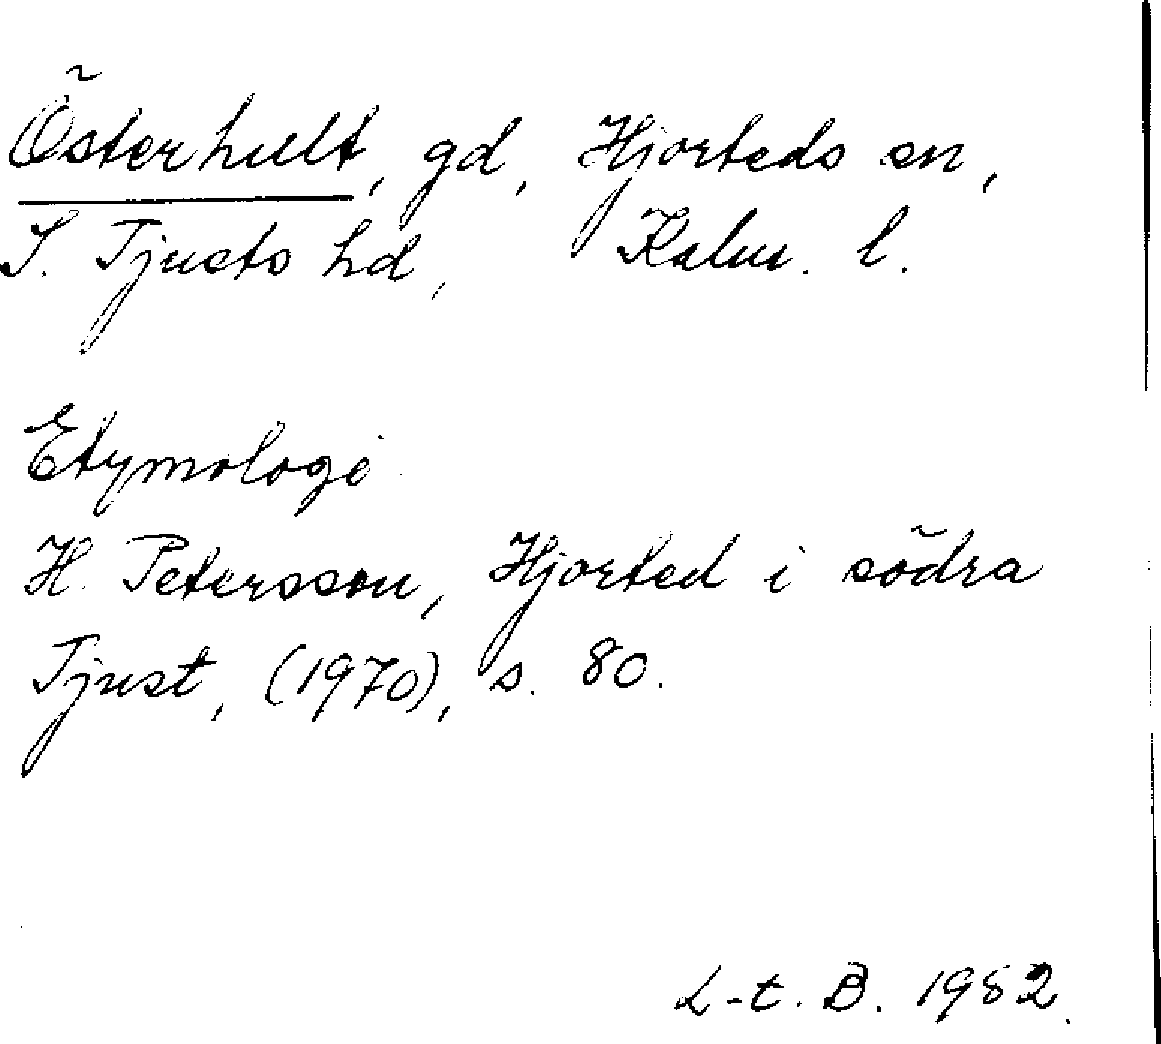 Österhult, gd, Hjorteds sn,
S. Tjusts hd, Kalm. l.
Etymologi
H. Petersson, Hjorted i södra
Tjust, (1970), s. 80.
L-t. B. 1982.